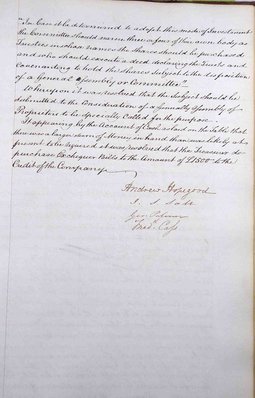 "In Case it be determined to adopt this mode of Investment
the Committee should name three or four of their own body as
Trustees in whose names the Shares should be purchased
and who should execute a deed declaring the Trusts and
Covenanting to hold the Shares subject to the disposition
of a General Assembly or Committee"
Whereupon it was resolved that the Subject should be
submitted to the Consideration of a General Assembly of
Proprietors to be specially called for the purpose.
It appearing by the Account of Cash as laid on the Table that
there was a larger sum of Money in hand than was likely at
present to be required it was resolved that the Treasurer do
purchase Exchequer Bills to the Amount of £1500 to the
Credit of the Company
Andrew Hopegood
Fred.